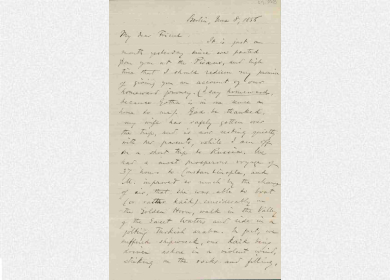 Berlin, June 8, 1856
My Dear Friend:
It is just a
month yesterday since we parted
from you at the Piraeus, and high
time that I should redeem my promise
of giving you an account of our
homeward journey. (I say homeward,
because Gotha is in so much a
home to me). God be thanked,
my wife has safely gotten over
the trip, and is now resting quietly
with her parents, while I am off
on a short trip to Russia. We
had a most prosperous voyage of
37 hours to Constantinople, and
M. improved so much by the change
of air, that she was able to boat
(or rather ) in
the Golden Horn, walk in the Valley
of the Sweet Waters and ride in a
jolting Turkish araba. In fact, we
suffered shipwreck, our
driven ashore in a violent wind,
striking on the rocks and filling,